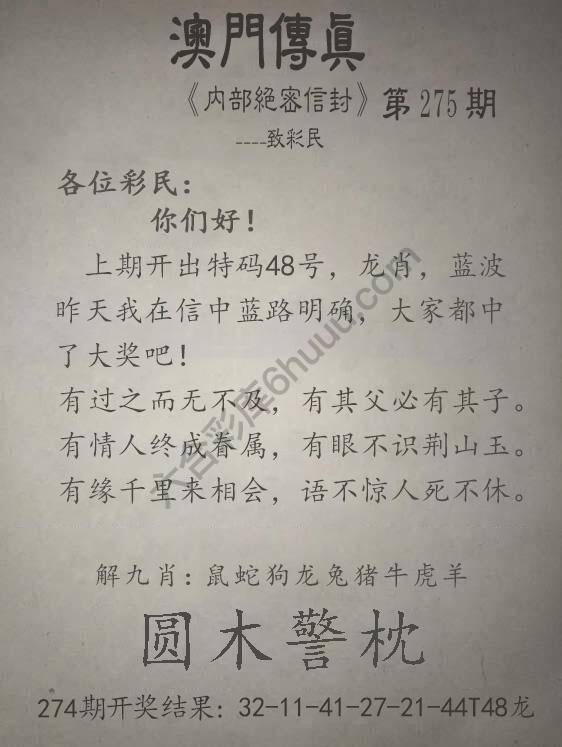 澳門傳眞
《内部絕密信封》第275期
----致彩民
各位彩民：
你们好！
上期开出特码48号，龙肖，蓝波
昨天我在信中蓝路明确，大家都中
了大奖吧！
有过之而无不及，有其父必有其子。
有情人终成眷属，有眼不识荆山玉。
有缘千里来相会，语不惊人死不休。
六合彩库6huuu.com
解九肖：鼠蛇狗龙兔猪牛虎羊
圆木警枕
274期开奖结果：32-11-41-27-21-44T48龙